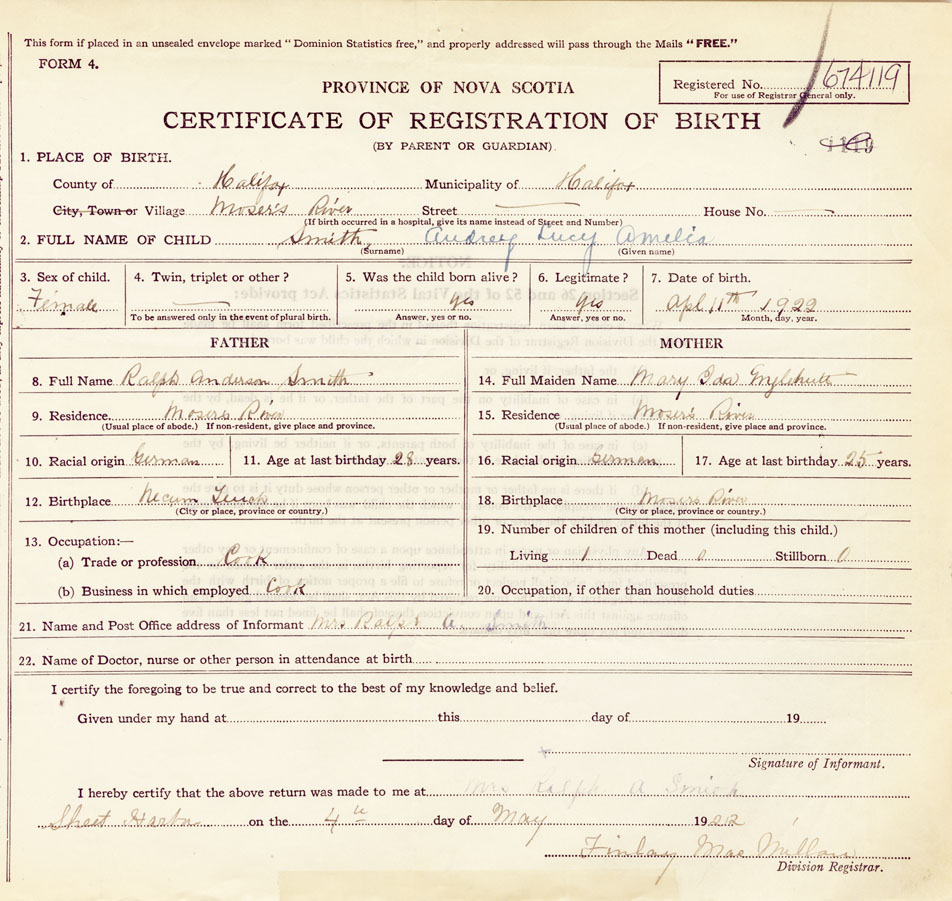 This form if placed in an unsealed envelope marked "Dominion Statistics free," and properly addressed will pass through the Mails "FREE."
FORM 4.
Registered No. 674119
For use of Registrar General only.
PROVINCE OF NOVA SCOTIA
CERTIFICATE OF REGISTRATION OF BIRTH
(BY PARENT OR GUARDIAN)
1. PLACE OF BIRTH.
County of Halifax Municipality of Halifax
City, Town or Village Moser's River Street House No.
(If birth occurred in a hospital, give its name instead of Street and Number)
2. FULL NAME OF CHILD Smith, Audrey Lucy Amelia
(Surname) (Given name)
3. Sex of child. 4. Twin, triplet or other? 5. Was the child born alive? 6. Legitimate? 7. Date of birth.
Female yes yes Apl 11th 1922
To be answered only in the event of plural birth. Answer, yes or no. Answer, yes or no. Month, day, year.
FATHER MOTHER
8. Full Name Ralph Anderson Smith 14. Full Maiden Name Mary Ida
9. Residence. Moser's River 15. Residence Moser's River
(Usual place of abode.) If non-resident, give place and province. (Usual place of abode.) If non-resident, give place and province.
10. Racial origin German 11. Age at last birthday 28 years. 16. Racial origin German 17. Age at last birthday 25 years.
12. Birthplace Necum Teuch 18. Birthplace Mosers River
(City or place, province or country.) (City or place, province or country.)
13. Occupation:— 19. Number of children of this mother (including this child.)
(a) Trade or profession Cook Living 1 Dead 0 Stillborn 0
(b) Business in which employed Cook 20. Occupation, if other than household duties
21. Name and Post Office address of Informant Mrs Ralph A. Smith
22. Name of Doctor, nurse or other person in attendance at birth
I certify the foregoing to be true and correct to the best of my knowledge and belief.
Given under my hand at this day of 19
Signature of Informant.
I hereby certify that the above return was made to me at Mrs Ralph A Smith
Sheet Harbr on the 4th day of May 1922
Finlay Mac Millan
Division Registrar.